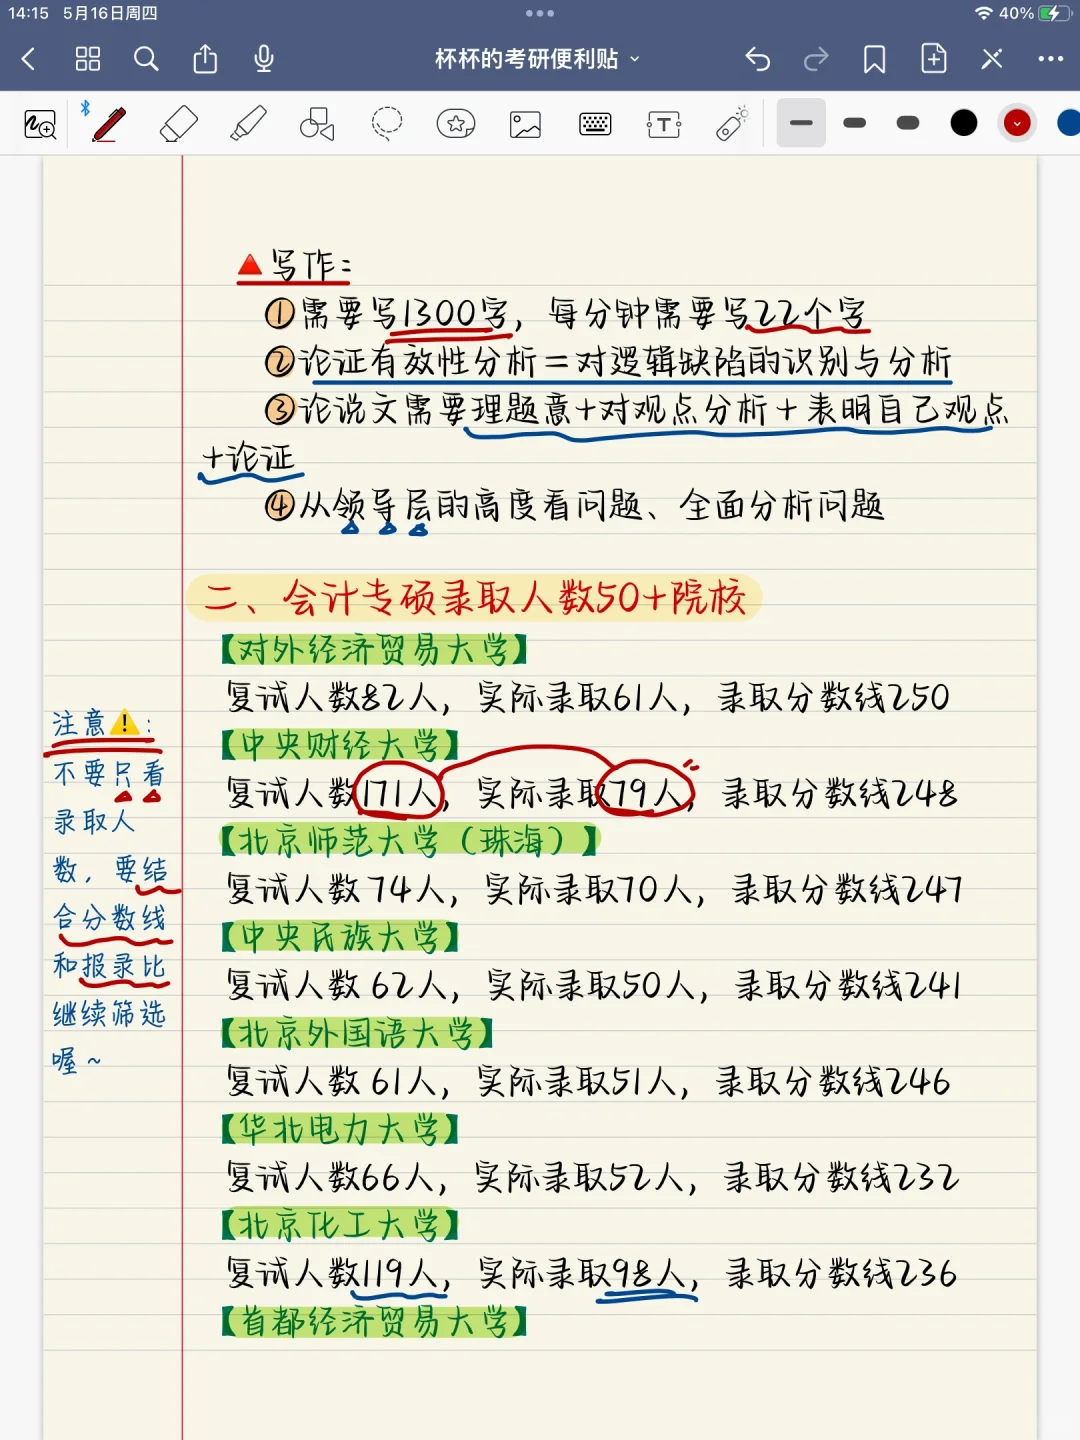 14:15 5月16日周四
40%
杯杯的考研便利贴
T
🔺写作:
①需要写1300字，每分钟需要写22个字
②论证有效性分析=对逻辑缺陷的识别与分析
③论说文需要理题意+对观点分析+表明自己观点
+论证
④从领导层的高度看问题、全面分析问题
二、会计专硕录取人数50+院校
【对外经济贸易大学】
复试人数82人，实际录取61人，录取分数线250
【中央财经大学】
复试人数171人，实际录取79人，录取分数线248
【北京师范大学（珠海）】
复试人数74人，实际录取70人，录取分数线247
【中央民族大学】
复试人数 62人，实际录取50人，录取分数线241
【北京外国语大学】
复试人数 61人，实际录取51人，录取分数线246
【华北电力大学】
复试人数66人，实际录取52人，录取分数线232
【北京化工大学】
复试人数119人，实际录取98人，录取分数线236
【首都经济贸易大学】
注意⚠️:
不要只看
录取人
数，要结
合分数线
和报录比
继续筛选
喔~